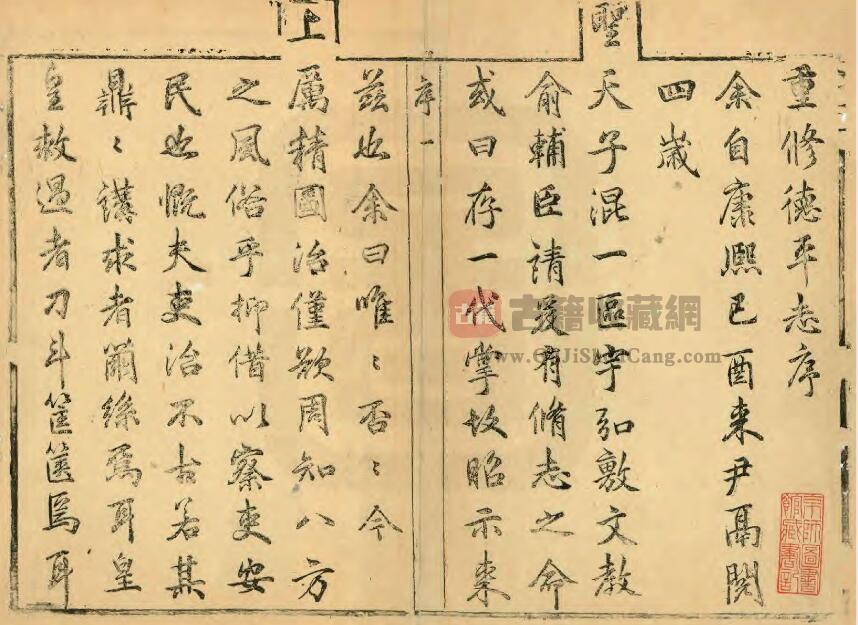 重修德平志序
余自康熙己酉来尹鬲閱
四歲
聖
天子混一區宇弘敷文教
俞輔臣請爰有脩志之命
或曰存一代掌故昭示来
序 一
茲也余曰唯〻否〻今
上
厲精圖治僅欲周知八方
之風俗乎抑借以察吏安
民也慨夫吏治不古若其
鼎〻講求者繭絲焉耳皇
皇救過者刀斗筐篋焉耳
古籍收藏網
www.GuJiShouCang.com
京師圖書
館藏書記